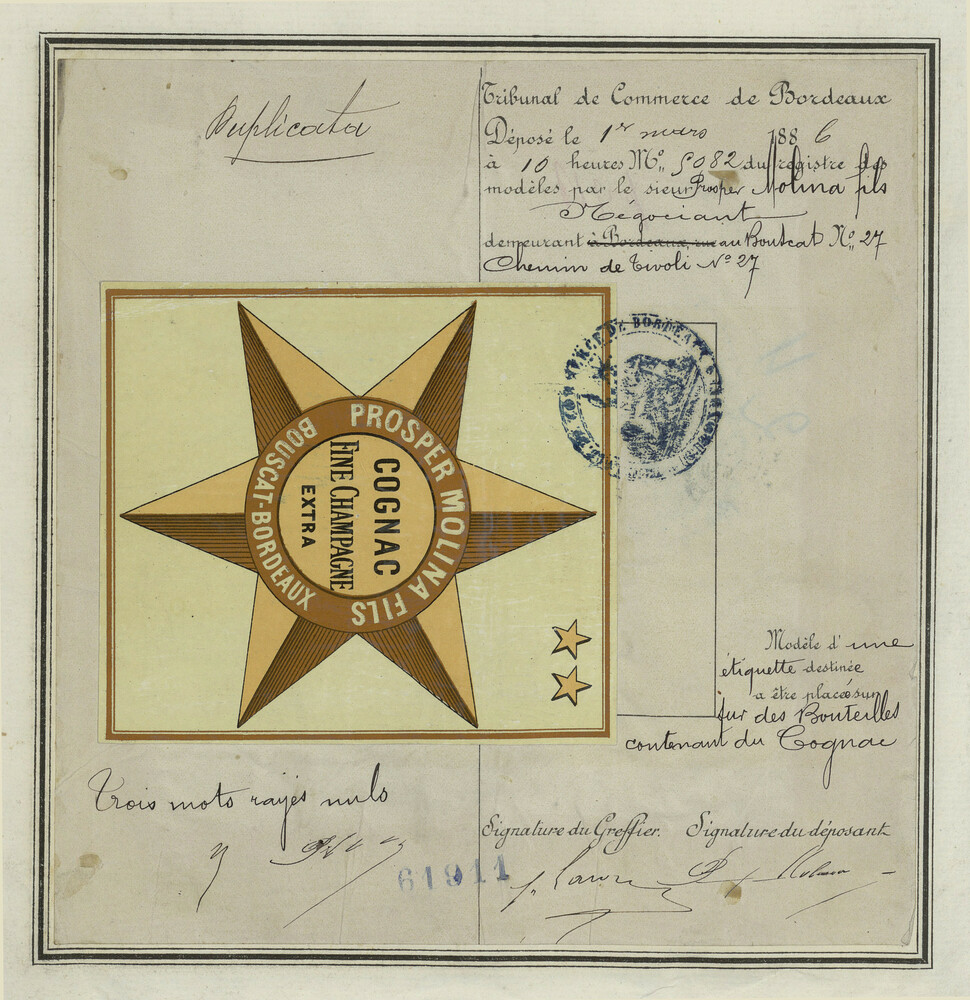 Duplicata
Tribunal de Commerce de Bordeaux
Déposé le 1er mars 1886
à 10 heures No. 5082 du registre des
modèles par le sieur Prosper Molina fils
Négociant
demeurant à Bordeaux, rue au Boutcat No. 27
Chemin de Tivoli No 27
PROSPER MOLINA FILS
BOUSCAT-BORDEAUX
COGNAC
FINE CHAMPAGNE
EXTRA
DE BORDEAUX
Modèle d'une
étiquette destinée
a être placée sur
sur des Bouteilles
contenant du Cognac
Trois mots rayés nuls
Signature du Greffier. Signature du déposant
61911
Molina